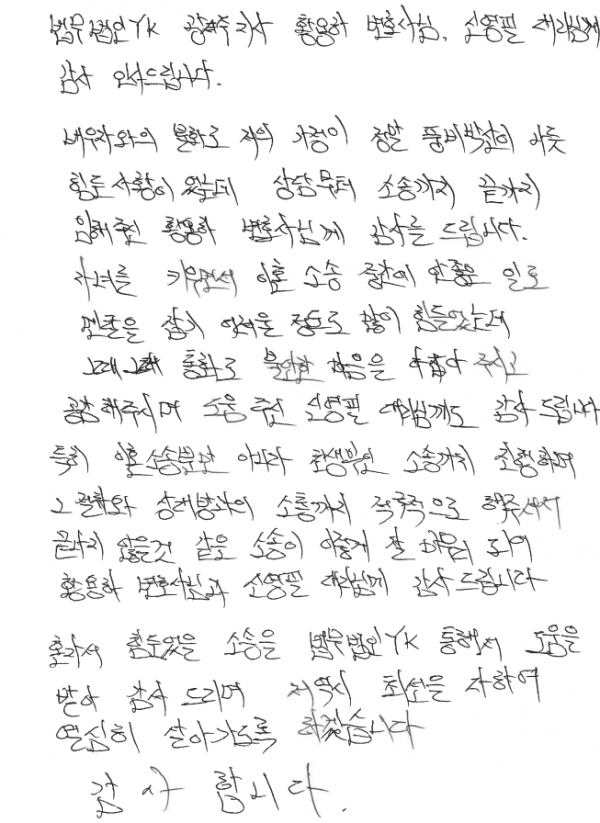 법무법인YK 광주지사 황용하 변호사님, 신영필 대리님께
감사 인사드립니다.
배우자와의 불화로 저의 가정이 정말 풍비박산이 나듯
힘든 상황이 있는데 상담부터 소송까지 끝까지
임해주신 황용하 변호사님께 감사를 드립니다.
자녀를 키우면서 이혼 소송 중간에 안좋은 일로
멘탈을 잡기 어려울 정도로 많이 힘들었는데
그때그때 통화로 불안한 마음을 주시고
공감해주시며 도움주신 신영필 대리님께도 감사드립니다
특히 이혼소송뿐만 아니라 소송까지 진행하며
그 상대방과의 소통까지 적극적으로 해주셔서
끝나지 않을것 같은 소송이 이렇게 잘 마무리 되어
황용하 변호사님과 신영필 대리님께 감사드립니다
혼자서 힘들었을 소송을 법무법인YK 통해서 도움을
받아 감사 드리며 저역시 최선을 다하여
열심히 살아가도록 하겠습니다
감사합니다.